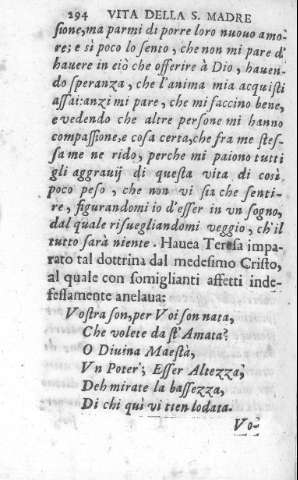 294 VITA DELLA S. MADRE
sione,ma parmi di porre loro nuouo amo-
re; e sì poco lo sento, che non mi pare d'
hauere in ciò che offerire à Dio, hauen-
do speranza, che l'anima mia acquisti
assai:anzi mi pare, che mi faccino bene,
e vedendo che altre persone mi hanno
compassione,e cosa certa,che frà me stes-
sa me ne rido, perche mi paiono tutti
gli aggrauij di questa vita di così
poco peso, che non vi sia che senti-
re, figurandomi io d'esser in vn sogno,
dal quale risuegliandomi veggio, ch'il
tutto sarà niente. Hauea Teresa impa-
rato tal dottrina dal medesimo Cristo,
al quale con somiglianti affetti inde-
fessamente anelaua:
Vostra son,per Voi son nata,
Che volete da st'Amata?
O Diuina Maestà,
Vn Poter', Esser Altezza,
Deh mirate la bassezza,
Di chi quì vi tien lodata.
Vo-